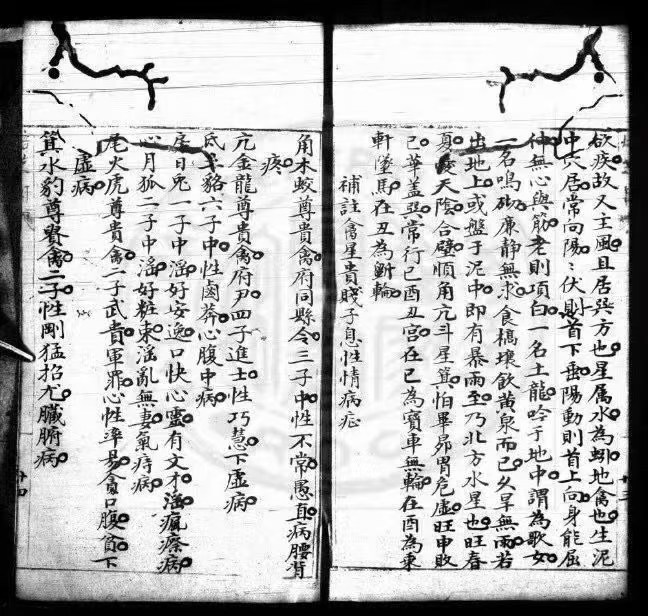 欲疾故又主風且居巽方也星属水為蚓地禽也生泥
中穴居常向陽〻伏則首下垂陽動則首上向身能屈
伸無心與筋老則項白一名土龍吟于地中謂為歌女
一名鳴砌廉静無求食槁壤飲黄泉而已久旱無雨若
出地上或盤于泥中即有暴雨至乃北方水星也旺春
夏愛天陰合壁順角亢斗星箕怕畢昴胃危虚旺申敗
己華盖巽常行巳酉丑宮在巳為寶車無輪在酉為東
軒墜馬在丑為斷輪
補註禽星貴賤子息性情病症
角木蛟尊貴禽府同縣令三子中性不常愚直病腰背
疼
亢金龍尊貴禽府尹四子進士性巧慧下虚病
氐土貉六子中性鹵莽心腹中病
房日兎一子中滛好安逸口快心靈有文才滛瘋瘵病
心月狐二子中滛好粧束滛亂無妻氣痔病
尾火虎尊貴禽二子武貴軍罪心性率易貪口腹貧下
虚病
箕水豹尊賢禽二子性剛猛招尤臟腑病